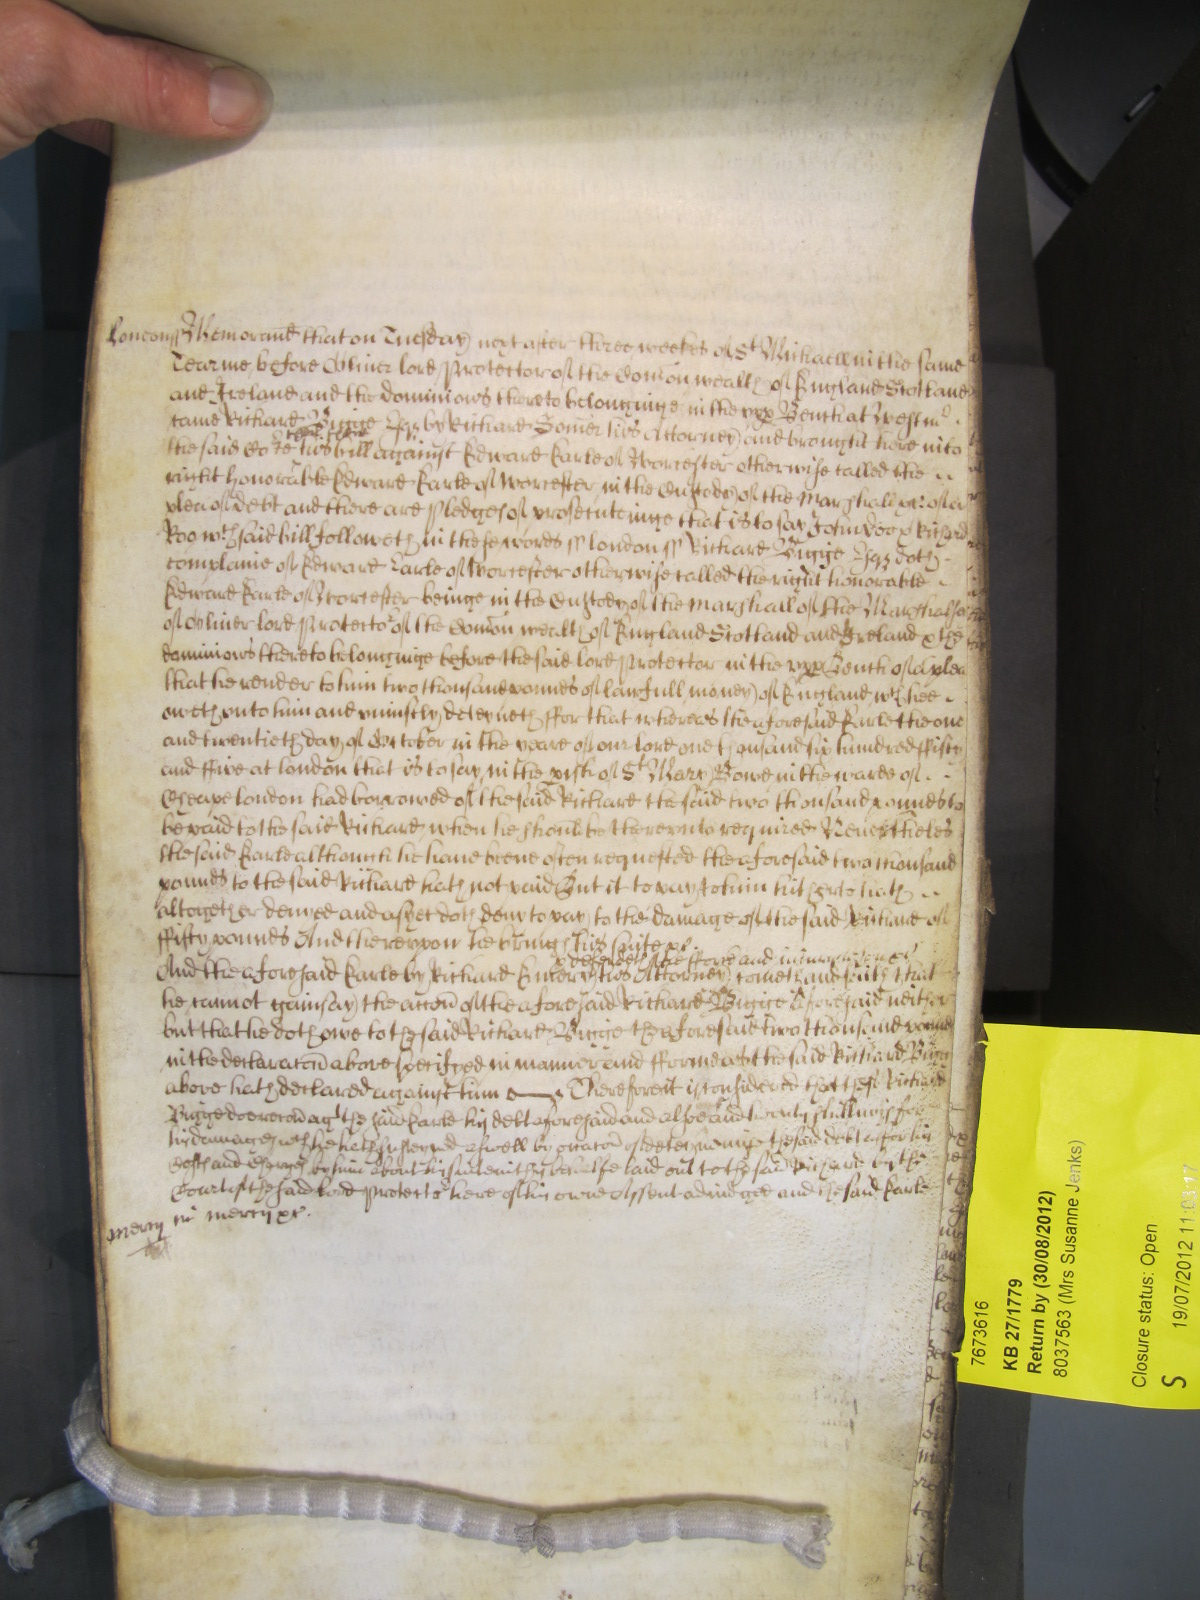 London ss Memorand that on Tuesday next after three weekes of St Michaell in the same
Tearme before Oliver lord Protector of the Comon wealth of England Scotland
and Ireland and the dominions thereto belonginge in the vpp Bench at Westmr
came Richard Bigge Esqr by Richard Somer his Attorney and brought here into
the said Cort his bill against Edward Earle of Worcester otherwise called the
right honorable Edward Earle of Worcester in the Custody of the Marshall &c of a
plea of debt and there are pledges of prosecuteinge that is to say John Doo & Richard
Roo wch said bill followeth in these words ss london ss Richard Bigge Esqr doth
complaine of Edward Earle of Worcester otherwise called the right honorable
Edward Earle of Worcester beinge in the Custody of the Marshall of the Marshalsea
of Oliver lord Protector of the Comon wealth of England Scotland and Ireland & the
dominions thereto belonginge before the said lord Protector in the vpp Bench of a plea
that he render to him two thousand pounds of lawfull money of England wch hee
oweth vnto him and vniustly deteyneth ffor that whereas the aforesaid Earle the one
and twentieth day of October in the yeare of our lord one thousand six hundred ffifty
and ffive at london that is to say in the pish of St Mary Bowe in the warde of
Cheape london had borrowed of the said Richard the said two thousand pounds to
be paid to the said Richard when he should be therevnto required Neverthelesse
the said Earle although he have beene often requested the aforesaid two thousand
pounds to the said Richard hath not paid But it to pay to him hitherto hath
altogether denyed and as yet doth deny to pay to the damage of the said Richard of
ffifty pounds And therevpon he brings his suite &c.
& defends the force and iniury when &c
And the aforesaid Earle by Richard his Attorney cometh and saith that
he cannot gainsay the accon of the aforesaid Richard Bigge aforesaid neither
but that he doth owe to the said Richard Bigge the aforesaid two thousand pounds
in the declaracon above specifyed in manner and fforme as the said Richard Bigge
above hath declared against him Therefore it is considered that the sd Richard
Bigge doe recover agt the said Earle his debt aforesaid and alsoe and twenty shillings for
his damages wch he hath susteyned aswell by occacon of deteyneinge the said debt as for his
Costs and Charges by him about his suite in this behalfe laid out to the said Richard by the
Court of the said Lord Protector here of his owne Assent adiudged and the said Earle
in mercy &c.
mercy
7673616
KB 27/1779
Return by (30/08/2012)
8037563 (Mrs Susanne Jenks)
Closure status: Open
S 19/07/2012 11:03:17